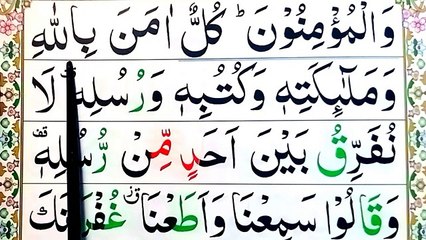 وَالْمُؤْمِنُوْنَ ؕ كُلٌّ اٰمَنَ بِاللّٰهِ
وَمَلٰٓئِكَتِهٖ وَكُتُبِهٖ وَرُسُلِهٖ ۟ لَا
نُفَرِّقُ بَيْنَ اَحَدٍ مِّنْ رُّسُلِهٖ ۟قف
وَقَالُوْا سَمِعْنَا وَاَطَعْنَا ۗ٘ غُفْرَانَكَ